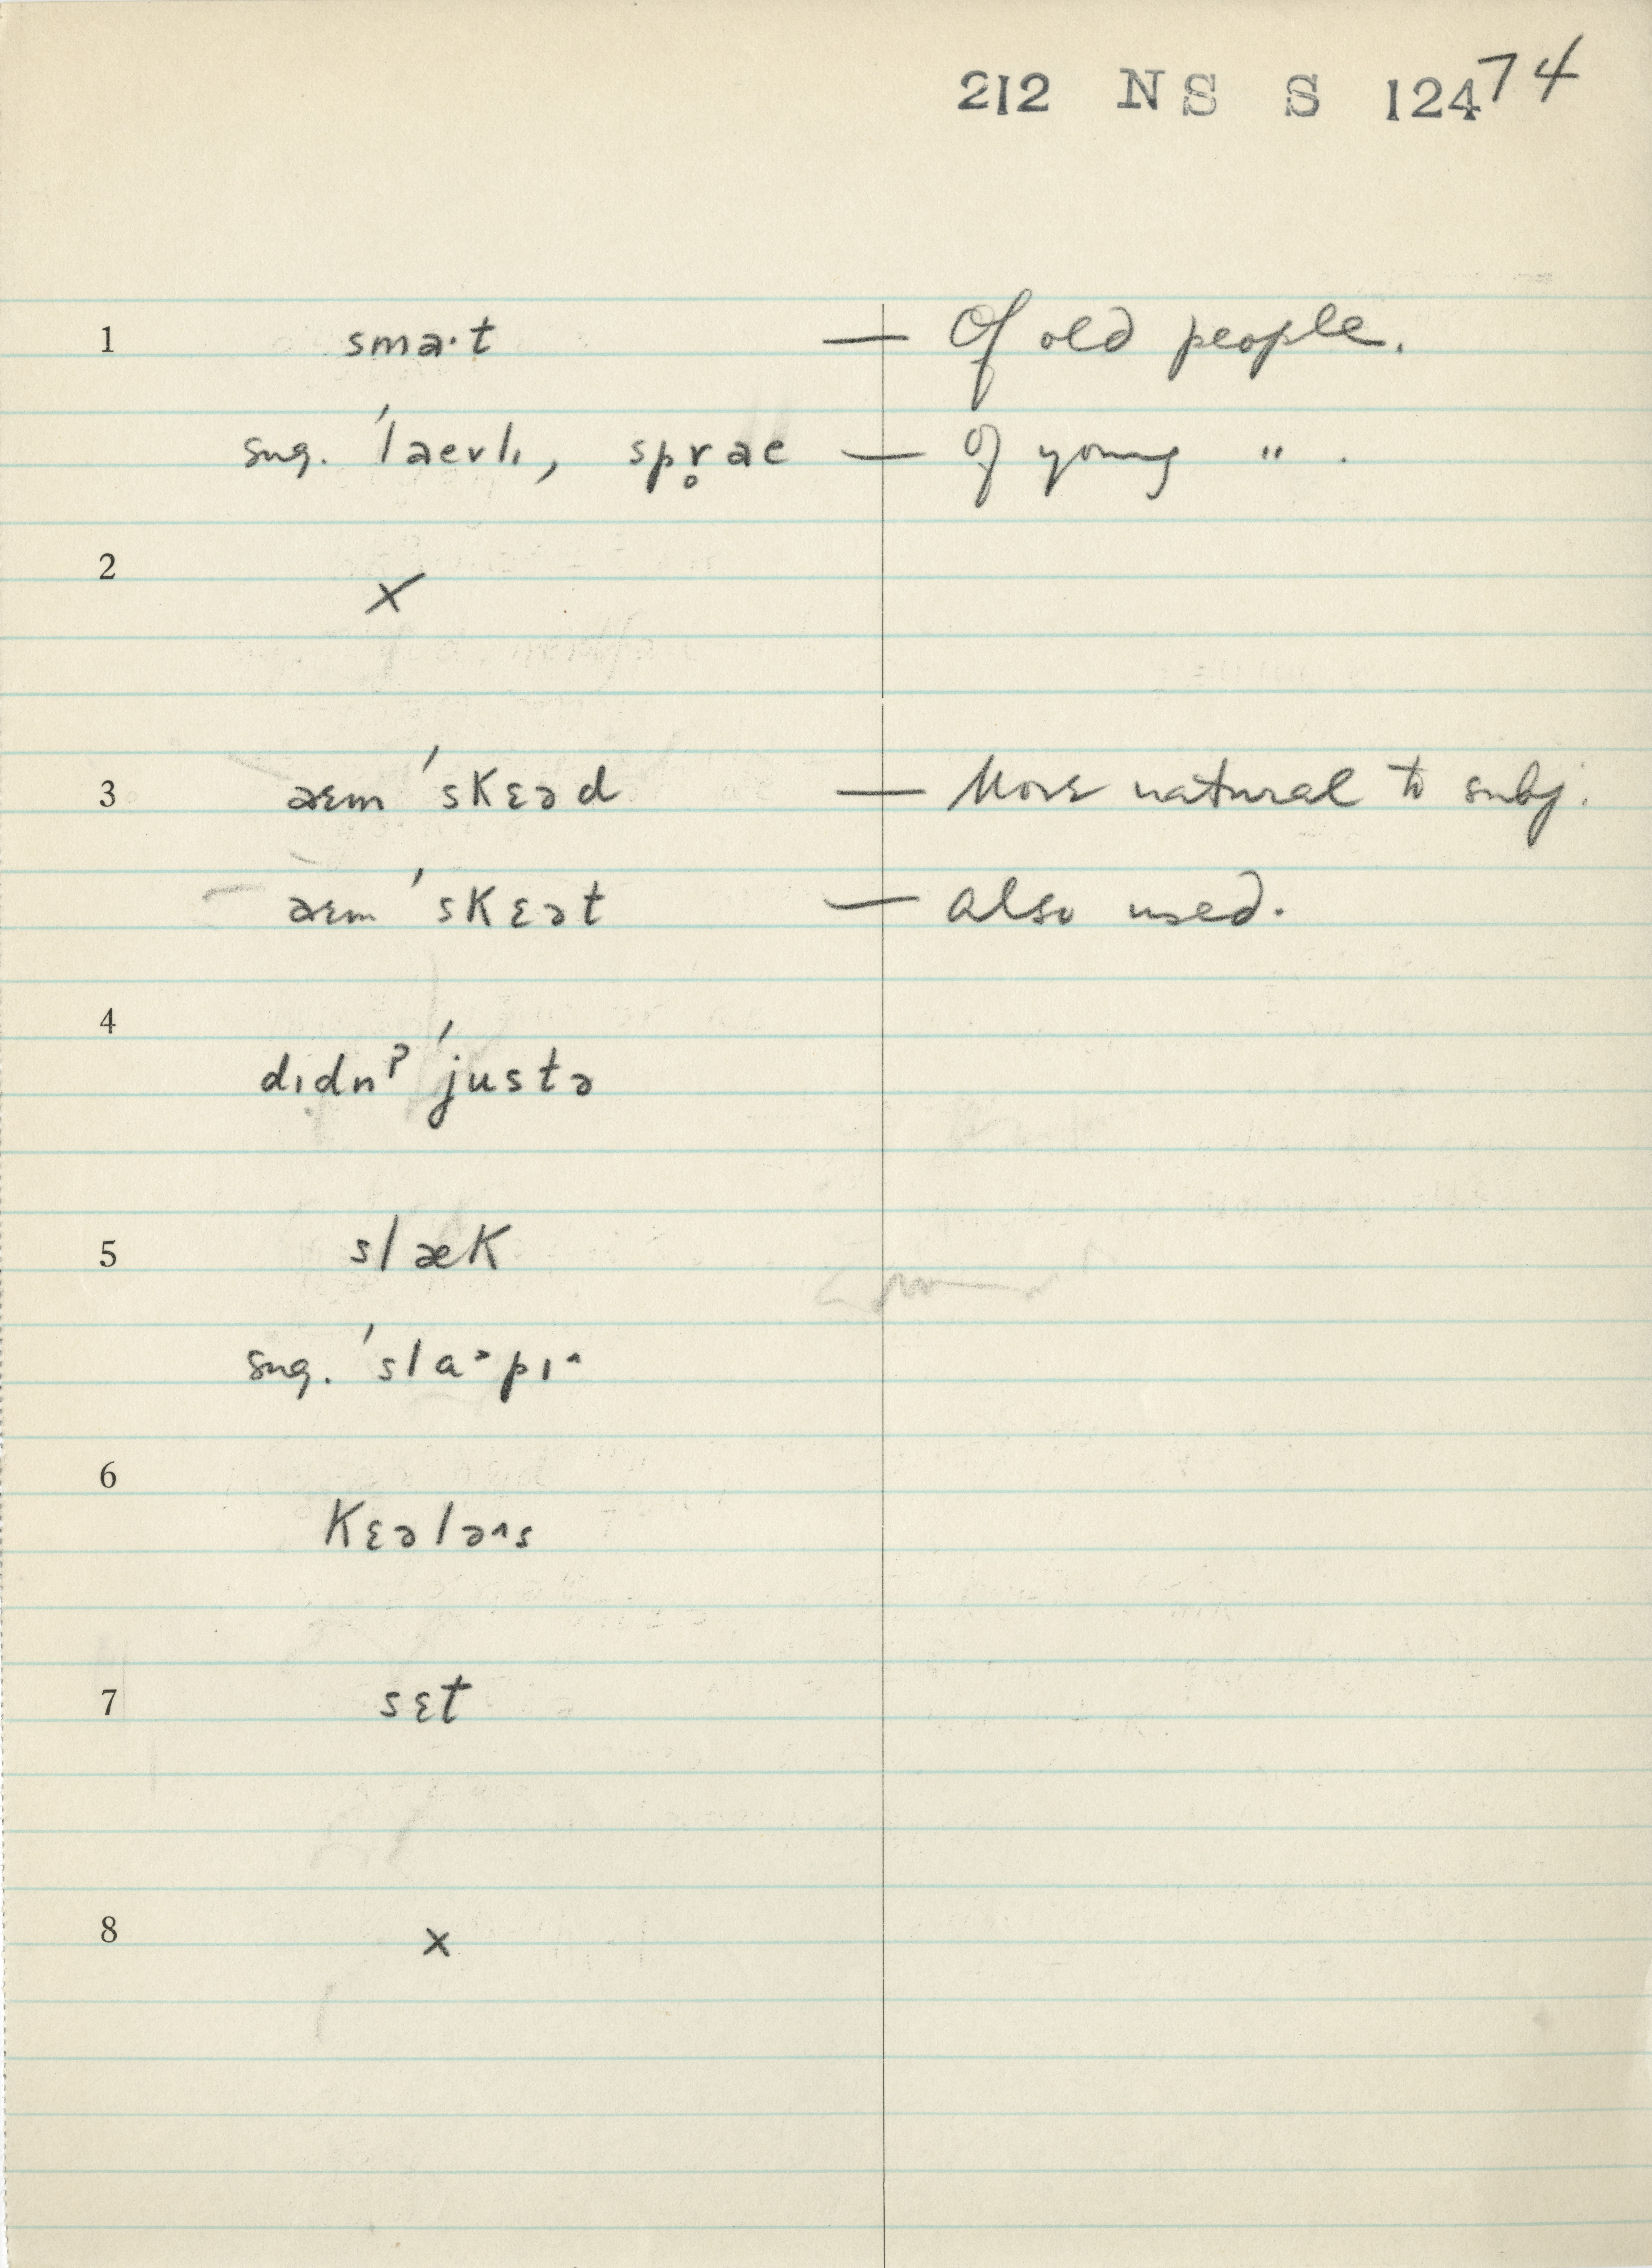 212 NS S 12474
1 smaˑt — Of old people.
sug. ˈlaɛvlɪ, spr̥aɛ — Of young " .
2 ×
3 aɛm ˈskɛəd — More natural to subj.
aɛm ˈskɛət — also used.
4 dɪdnʔ ˈjustə
5 slæk
sug. ˈslaˑpɪ^
6 kɛələ^s
7 sɛt
8 ×